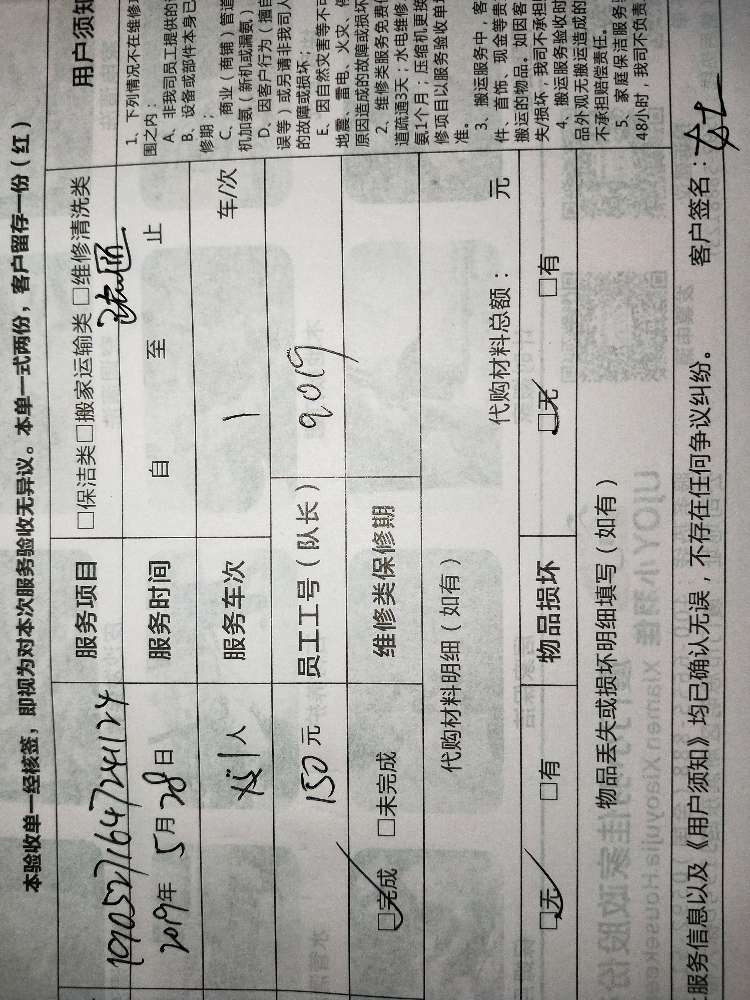 本验收单一经核签，即视为对本次服务验收无异议。本单一式两份，客户留存一份（红）
服务项目 □保洁类□搬家运输类 □维修清洗类
2019年 5月 28日 服务时间 自 至 止
1人 服务车次 1 车/次
150元 员工工号（队长） 9019
□完成 □未完成 维修类保修期
代购材料明细（如有） 代购材料总额： 元
□无 □有 物品损坏 □无 □有
物品丢失或损坏明细填写（如有）
服务信息以及《用户须知》均已确认无误，不存在任何争议纠纷。 客户签名：
用户须知
1、下列情况不在维修
围之内：
A、非我司员工提供的
B、设备或部件本身已
修期；
C、商业（商铺）管道
机加氨（新机或漏氨）
D、因客户行为（擅自
误等）或另请非我司人
的故障或损坏；
E、因自然灾害等不可
地震、雷电、火灾、
原因造成的故障或损坏
2、维修类服务免费
道疏通3天；水电维修
氨1个月；压缩机更换
修项目以服务验收单
准。
3、搬运服务中，客
件、首饰、现金等贵
搬运的物品。如因客
失/损坏，我司不承担
4、搬运服务验收时
品外观无搬运造成的
不承担赔偿责任。
5、家庭保洁服务
48小时，我司不负责